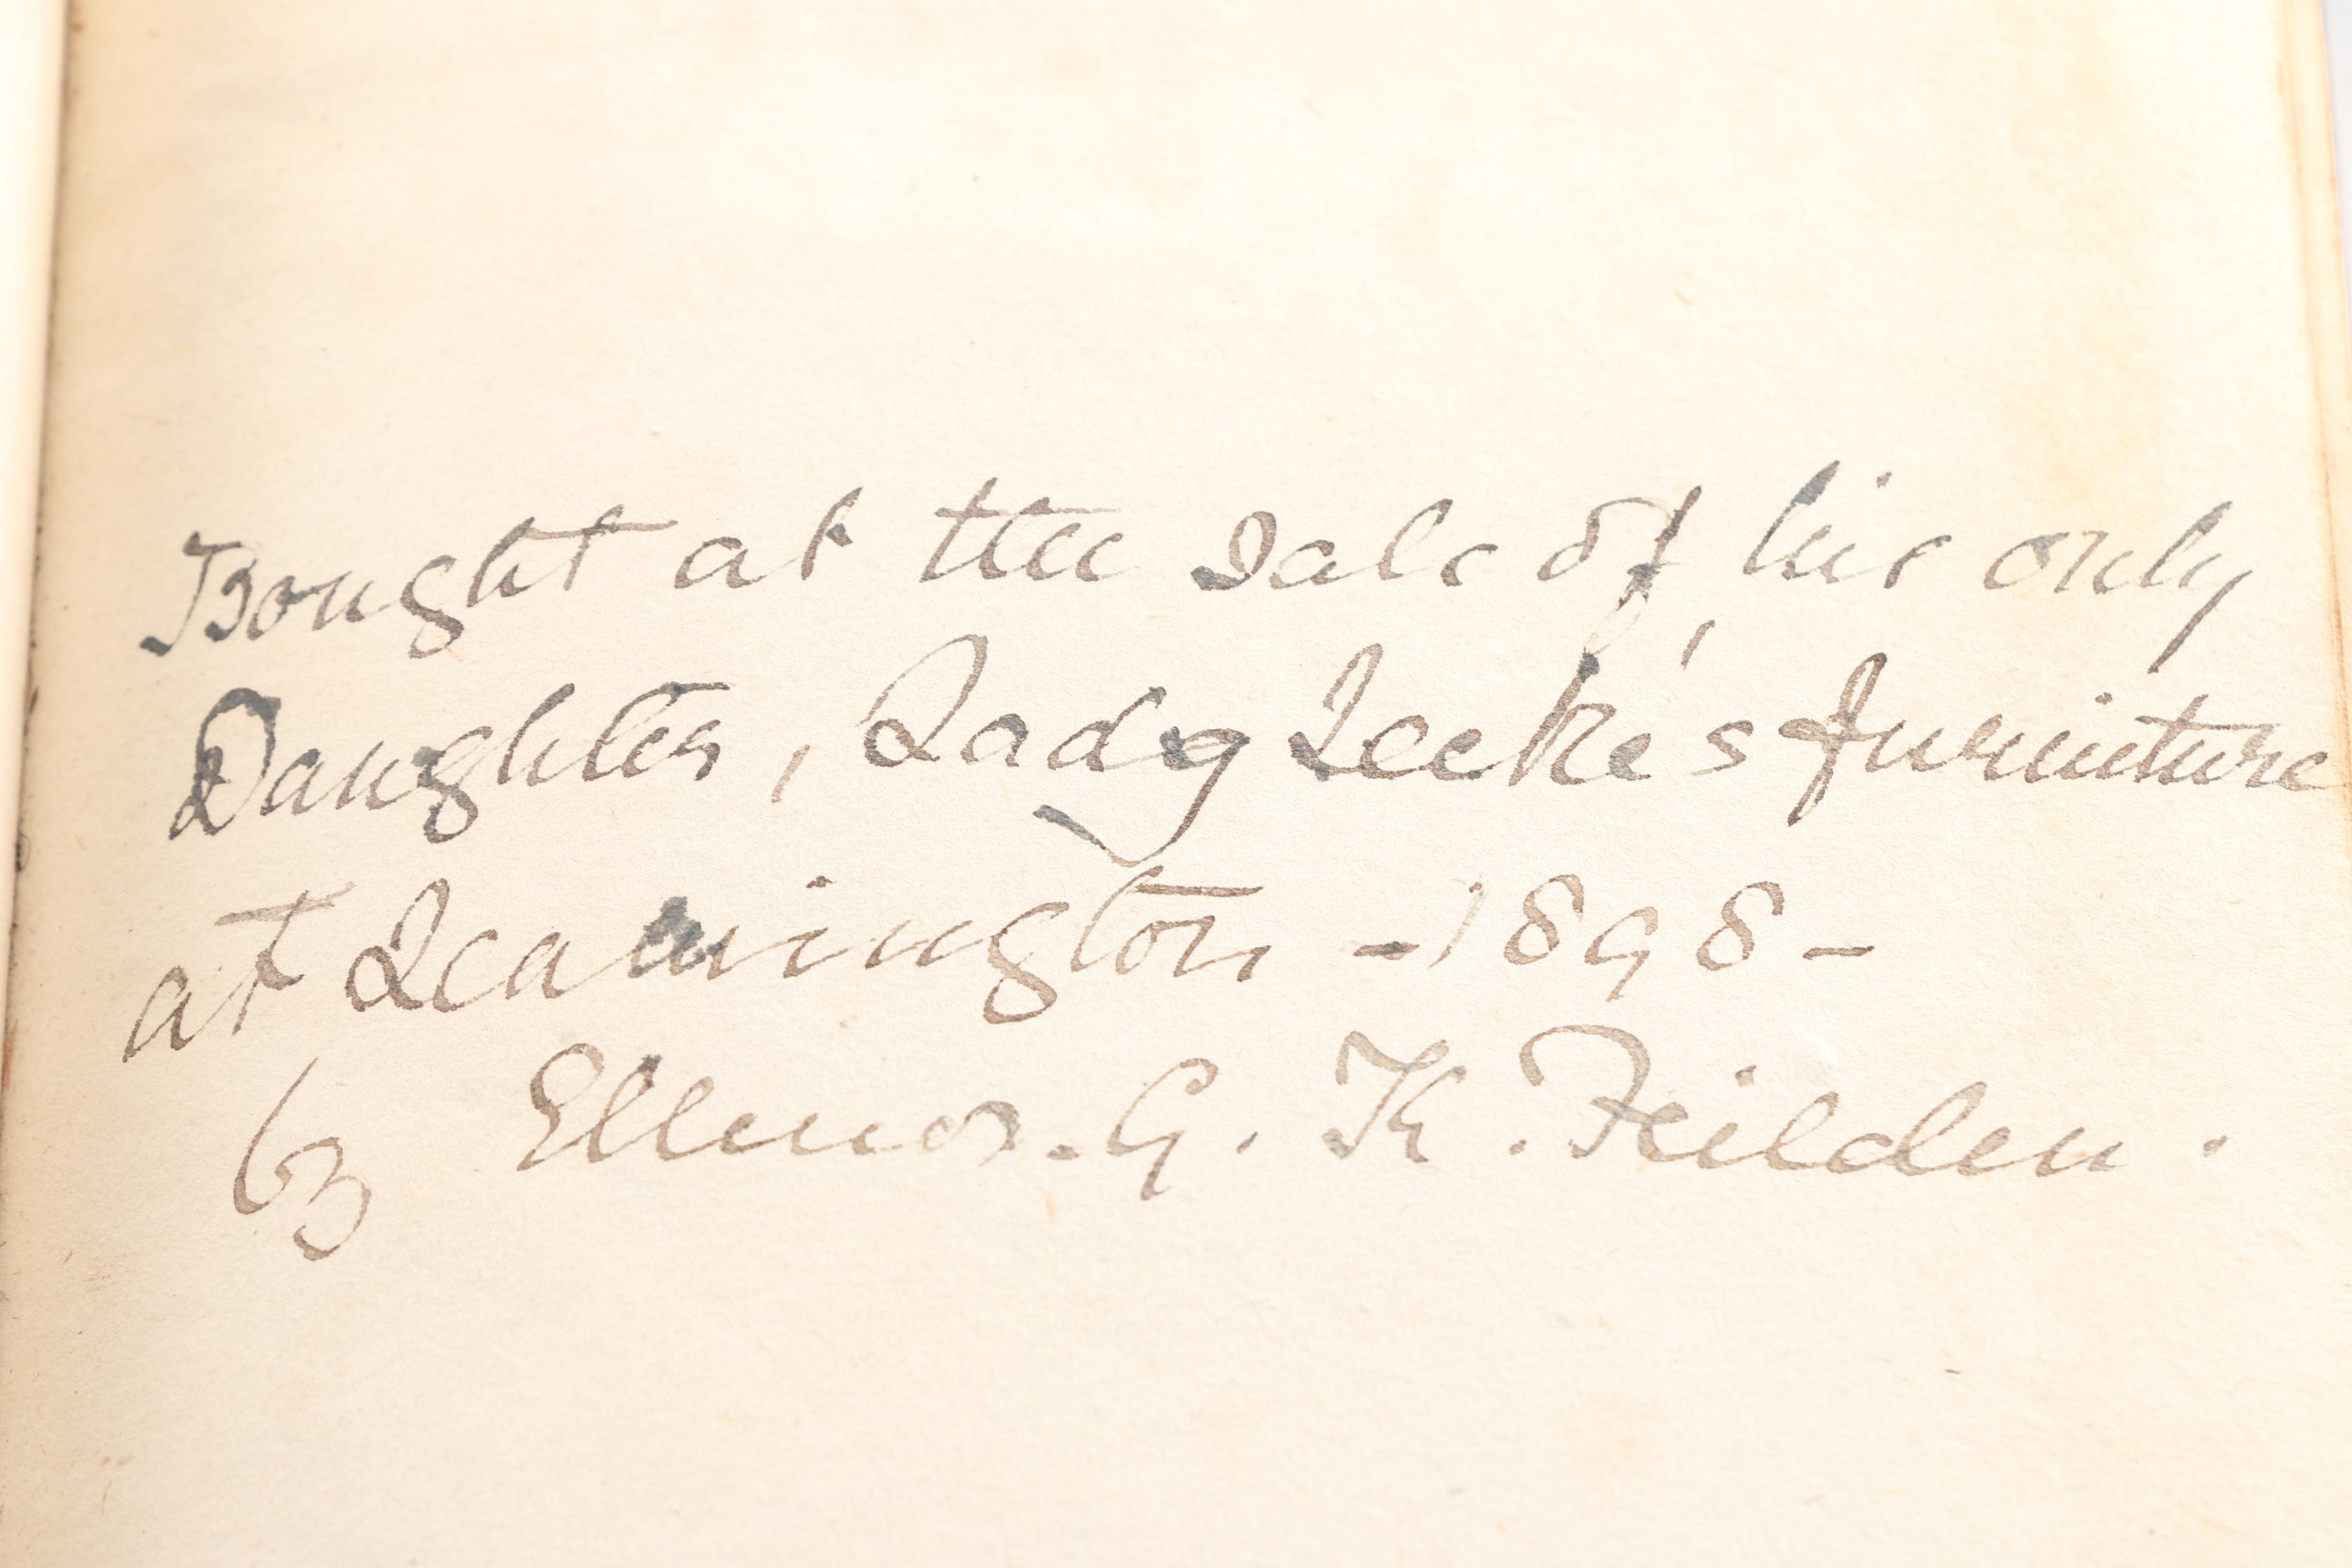 Bought at the Sale of his only
Daughter, Lady Leeke's furniture
at Leamington - 1898 -
by Ellenor. G. K. Feilden.